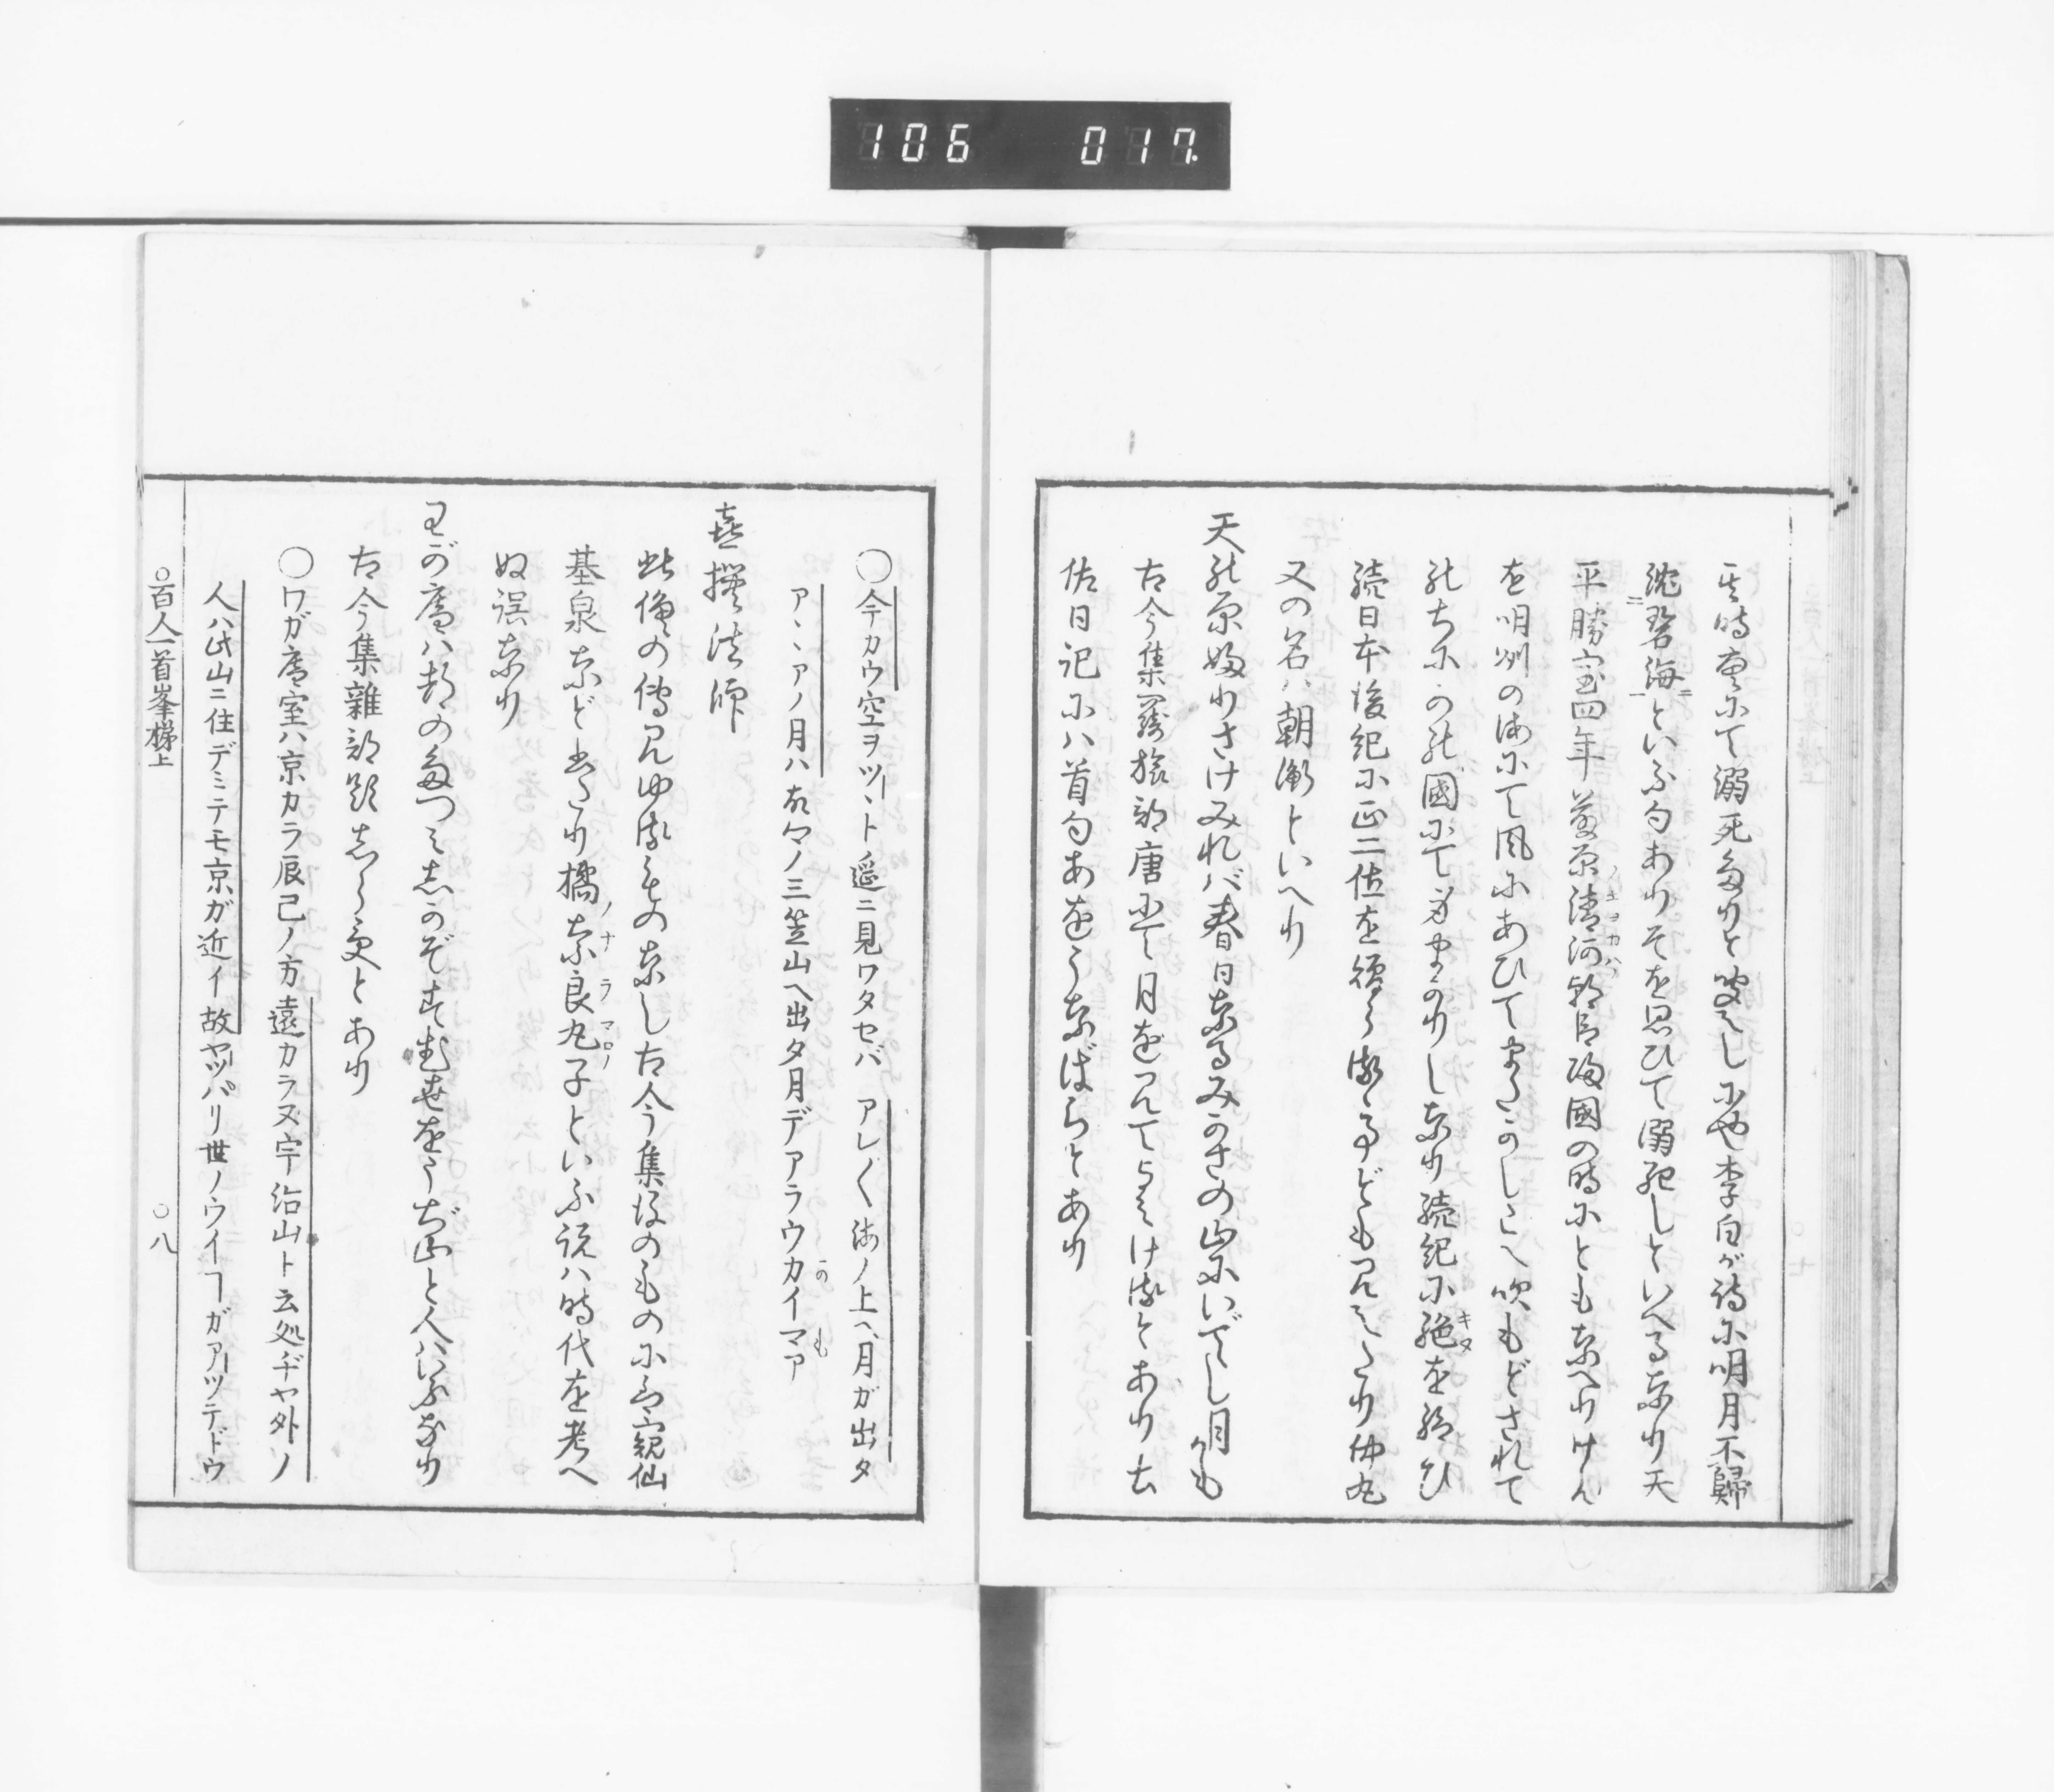 106 017.
其時唐にて溺死たりと聞えしにや李白が詩に明月不歸
沈碧海といふ句ありそを思ひて溺死しといへるなり天
平勝宝四年藤原清河朝臣帰國の時にともなへりけん
を明州の海にて風にあひてまたかしこへ吹もどされて
のちにかの國にて身まかりしなり続紀に絁を給ひ
続日本後紀に正二位を贈らるゝ事ども見えたり仲丸
又の名ハ朝衡といへり
天の原ふりさけみれバ春日なるみかさの山にいでし月かも
古今集羇旅部唐にて月を見てよみけるとあり土
佐日記にハ首句あをうなばらとあり
〇今カウ空ヲツヽト遥ニ見ワタセバアレ〳〵海ノ上ヘ月ガ出タ
アヽアノ月ハ故郷ノ三笠山ヘ出タ月デアラウカイマア
かの も
喜撰法師
此僧の傳見ゆるものなし古今集後のものには窺仙
基泉など書たり橘奈良丸子といふ説ハ時代を考へ
ノナラマロノ
ぬ誤なり
わが庵ハ都のたつみしかぞすむ世をうぢ山と人ハいふなり
古今集雜部題しらずとあり
〇ワガ庵室ハ京カラ辰巳ノ方遠カラヌ宇治山ト云処ヂヤ外ノ
人ハ此山ニ住デミテモ京ガ近イ故ヤツバリ世ノウイヿガアツテドウ
〇百人一首峯梯上 〇八